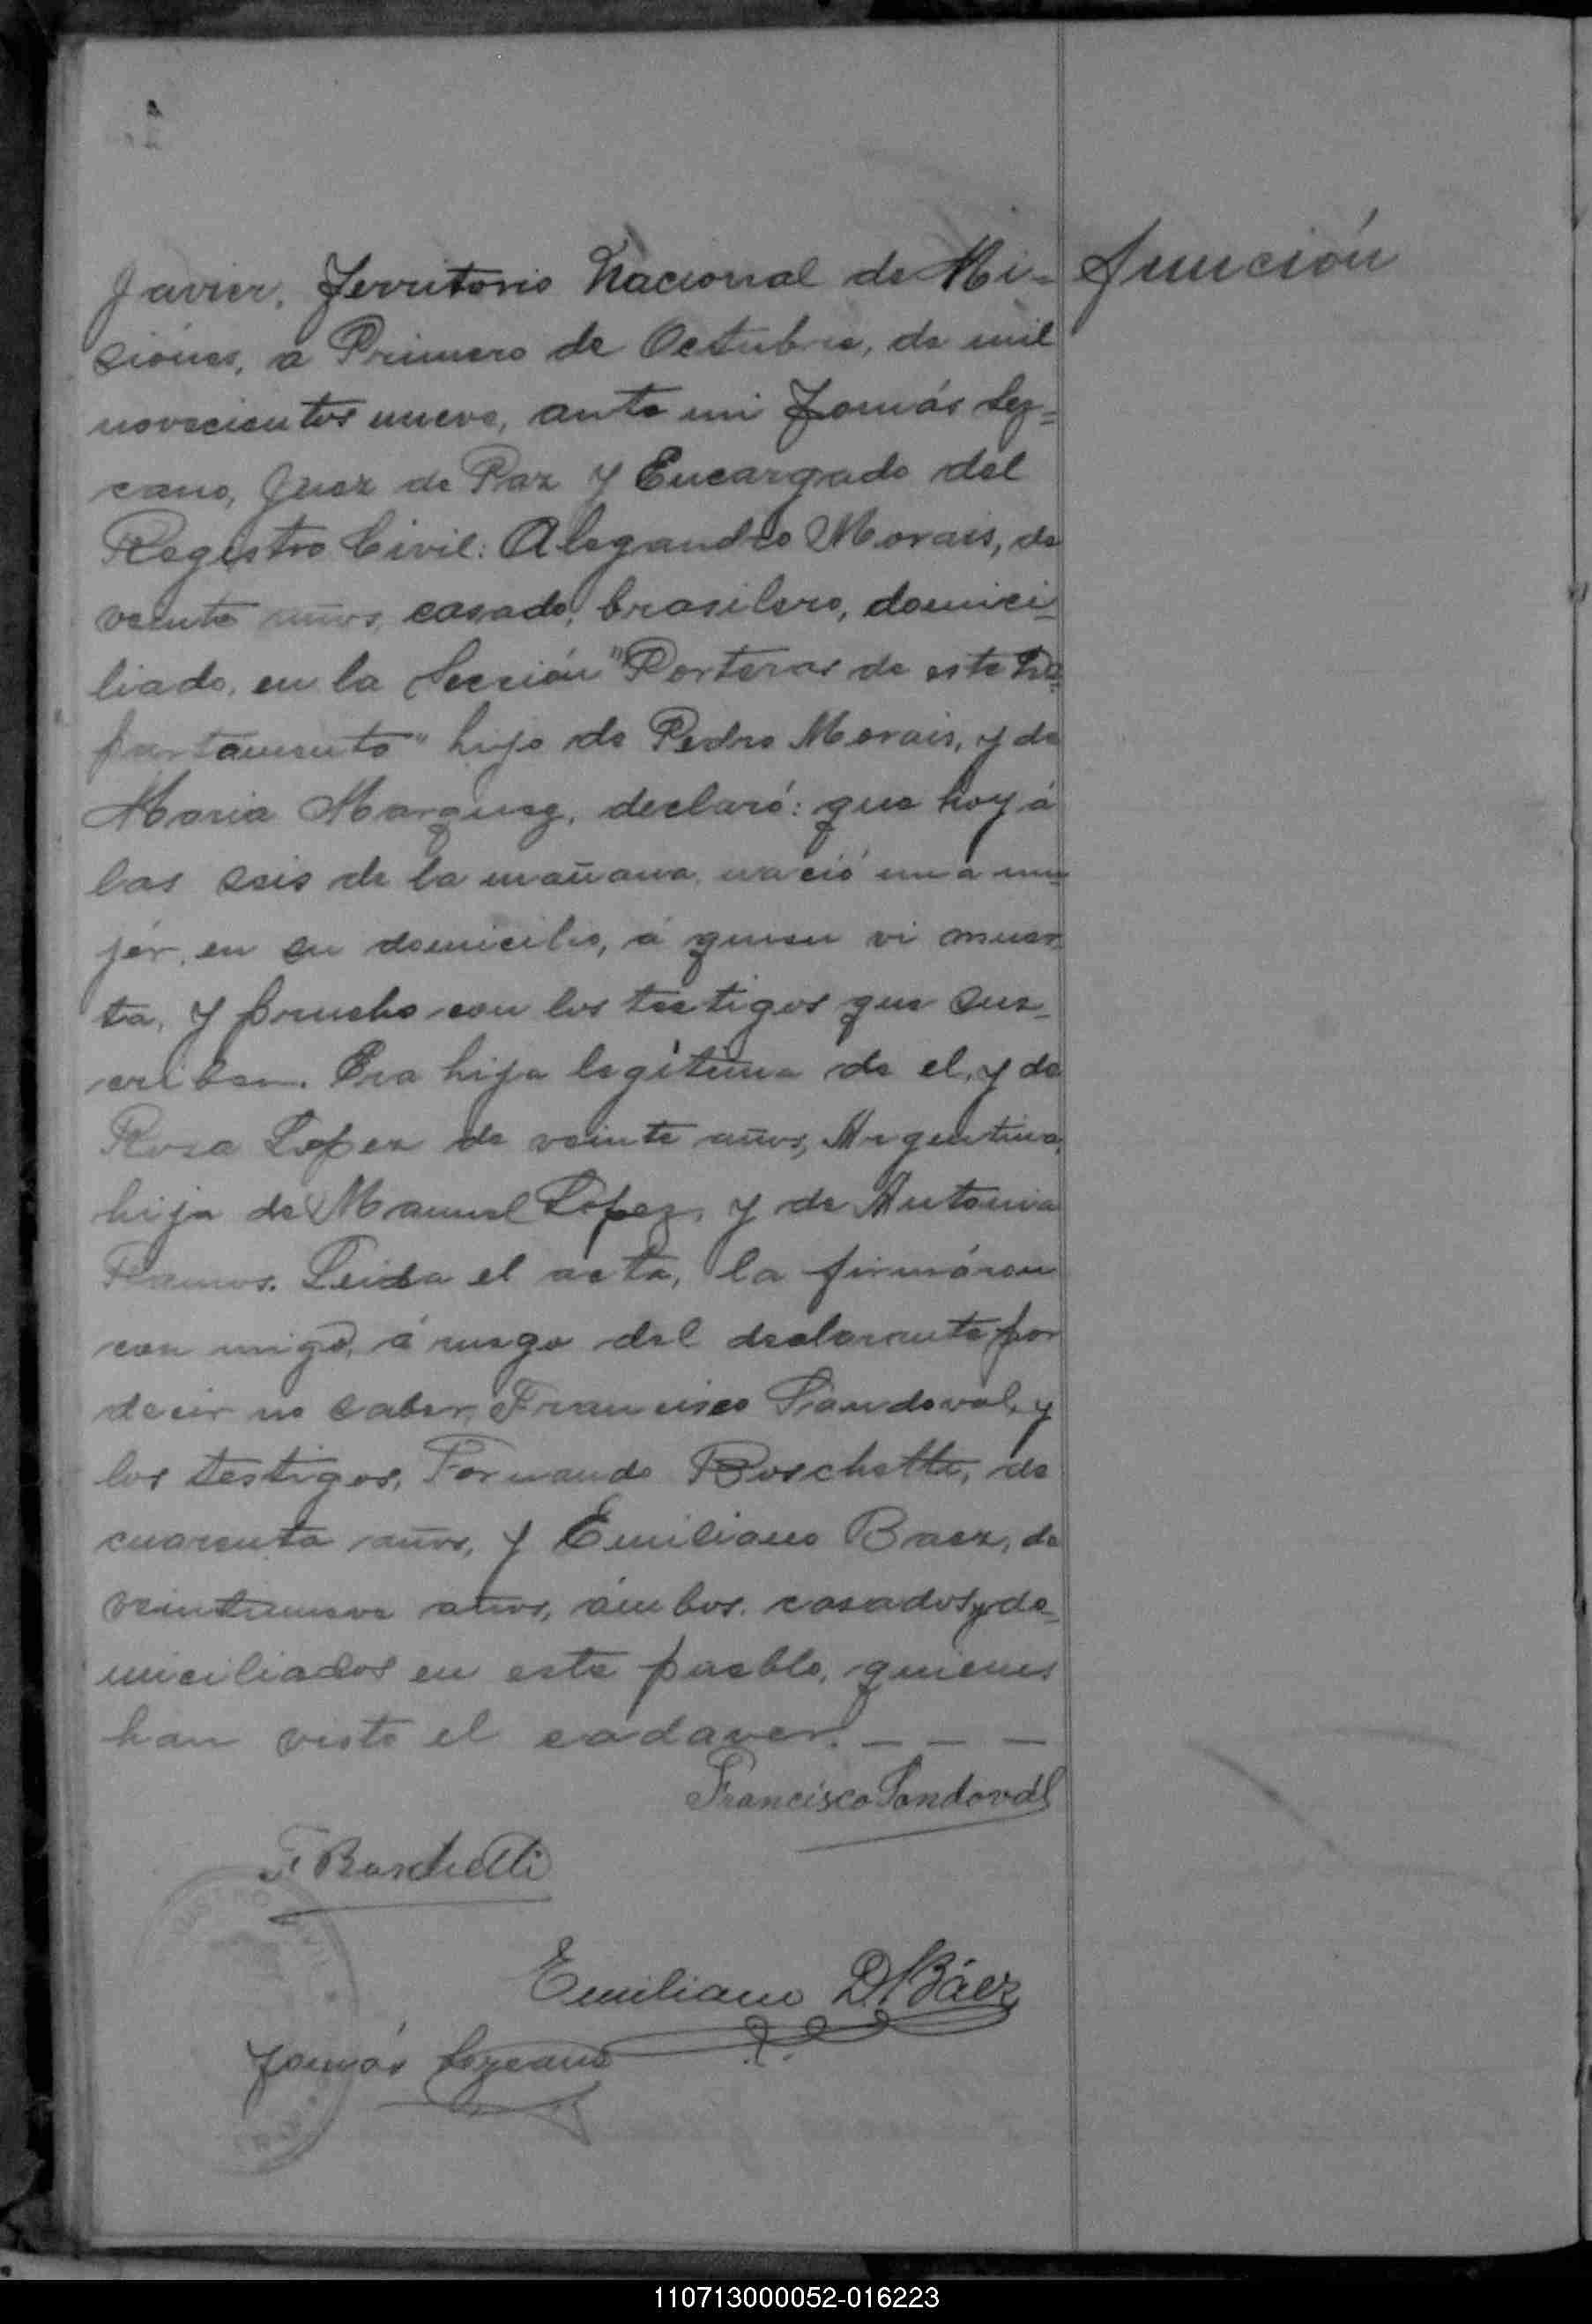 Javier, Territorio Nacional de Mi-
siones, a Primero de Octubre, de mil
novecientos nueve, ante mi Tomás Lez-
cano, Juez de Paz y Encargado del
Registro Civil: Alegandro Morais, de
veinte años, casado, brasilero, domici-
liado, en la Sección "Porteras de este De-
partamento" hijo de Pedro Morais, y de
Maria Marquez, declaró: que hoy á
las seis de la mañana, nació una mu-
jér, en su domicilio, á quien vi muer-
ta, y con los testigos que sus-
criben. Era hija legitima de el, y de
Rosa Lopez de veinte años, Argentina,
hija de Manuel Lopez, y de Antonia
Ramos. Leida el acta, la firmáron
con migo, á ruego del declarante por
decir no saber, Francisco Sandoval, y
los testigos, Fernando Boschette, de
cuarenta años, y Emiliano Baez, de
veintinueve años, ámbos. casados y do-
miciliados en este pueblo, quienes
han visto el cadaver. — — —
función
Francisco Sandovál
F. Boschetti
Emiliano D. Báez
Tomás Lezcano
110713000052-016223